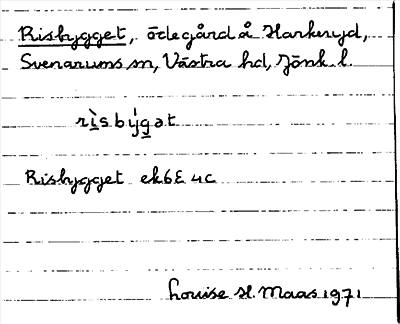 Risbygget, ödegård å Harkeryd,
Svenarums sn, Västra hd, Jönk. l.
rìsbýgət
Risbygget ek6E 4c
Louise H. Maas 1971